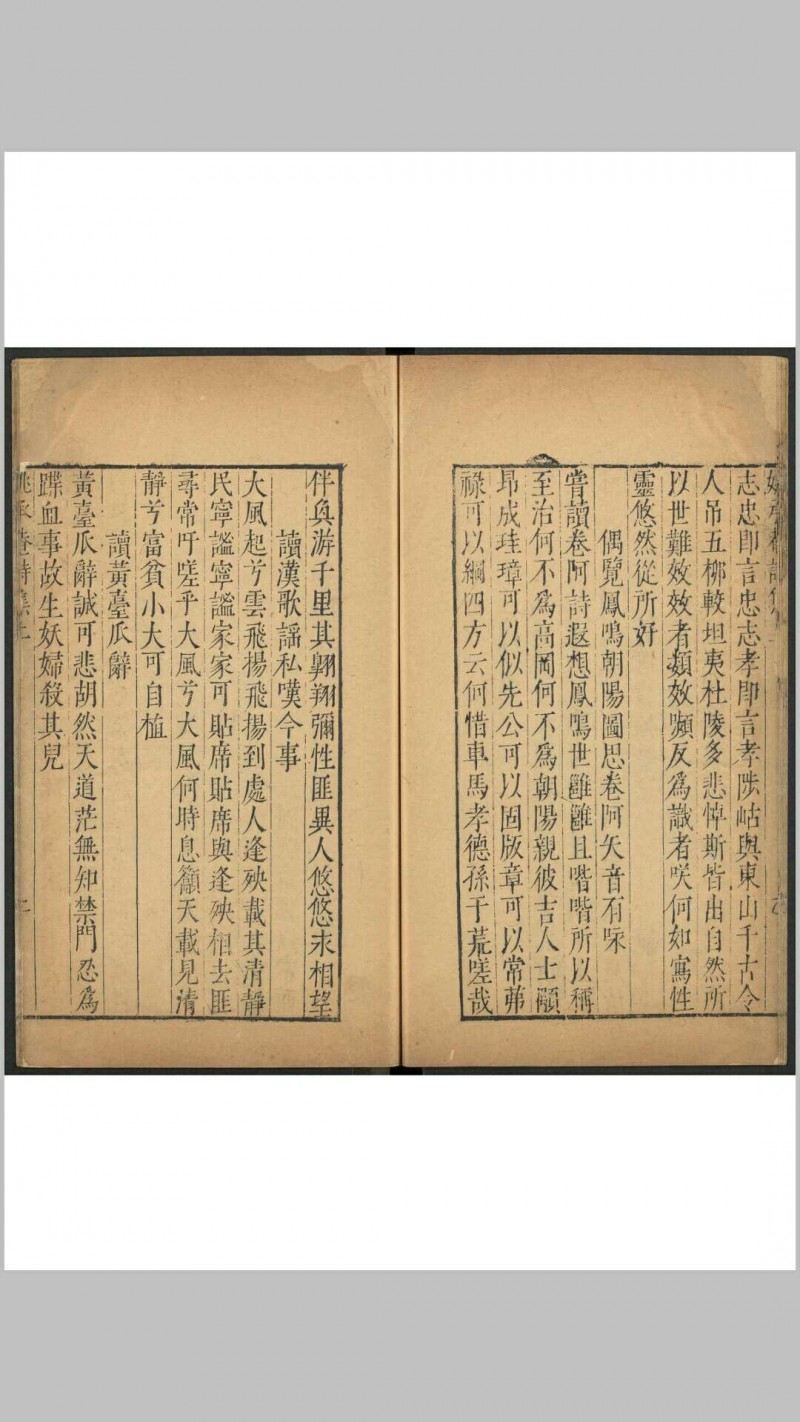 志忠即言忠志孝即言孝陟岵與東山千古令
人吊五柳較坦夷杜陵多悲悼斯皆出自然所
以世難效效者顙效嚬反為識者咲何如寓性
靈悠然從所好
偶覽鳳鳴朝陽圖思卷阿矢音有咏
嘗讀卷阿詩遐想鳳鳴世雝雝且喈喈所以稱
至治何不為高岡何不為朝陽親彼吉人士顒
昂成珪璋可以似先公可以固版章可以常茀
祿可以綱四方云何惜車馬孝德孫于荒嗟哉
伴奐游千里其翺翔彌性匪異人悠悠求相望
讀漢歌謠私嘆今事
大風起兮雲飛揚飛揚到處人逢殃載其清靜
民寧謐寧謐家家可貼席貼席與逢殃相去匪
尋常吁嗟乎大風兮大風何時息籲天載見清
靜兮富貧小大可自植
讀黃臺瓜辭
黃臺瓜辭誠可悲胡然天道茫無知禁門忍為
蹀血事故生妖婦殺其兒